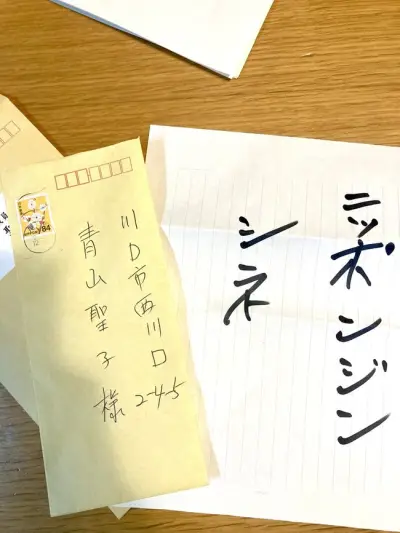 ニッポンジン
シネ
川口市西川口2-4-5
青山聖子様
84